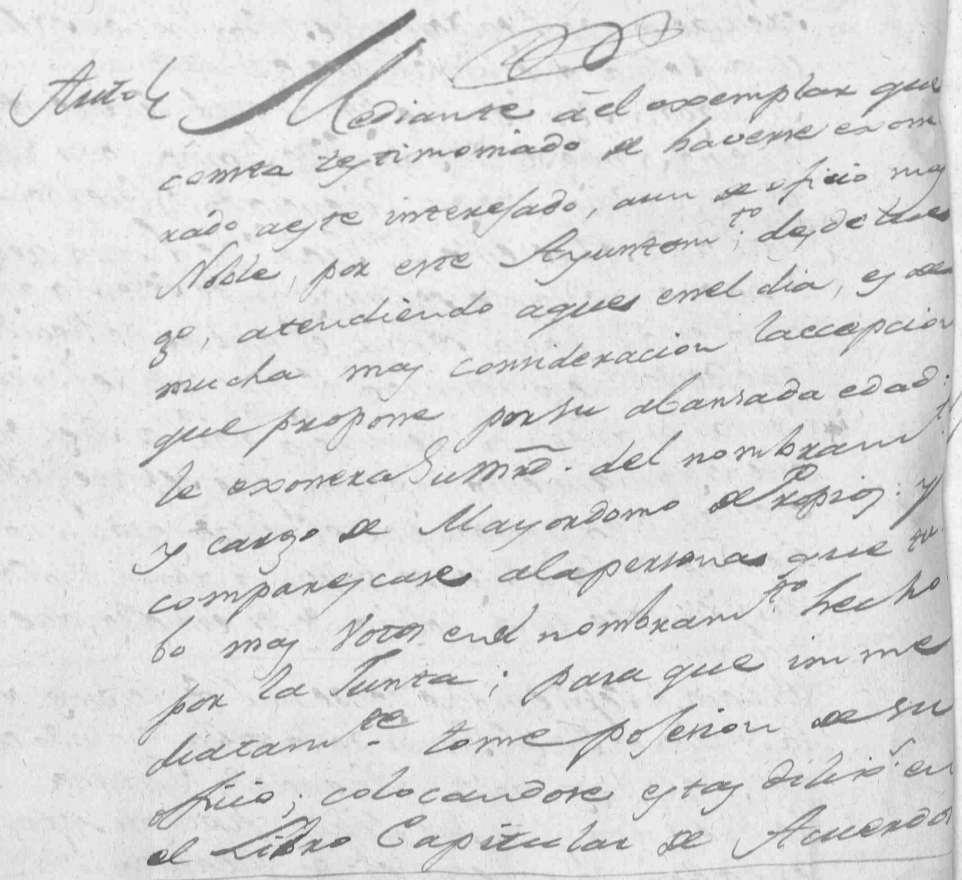 Auto
Mediante â el exemplar que
consta testimoniado de haverse exone
rado aeste interesado, aun de oficio mas
Noble, por este Ayuntam.to; desde luego
go, atendiendo aque enel dia, es de
mucha mas consideracion laccepcion
que propone por su abansada edad:
le exonera Su mrd. del nombram.to
y cargo de Mayordomo de Propios: y
comparescase ala persona que tu
bo mas Votos enel nombram.to hecho
por la Junta; para que imme
diatam.te tome posesion de su
oficio; colocandose estas dilix.s en
el Libro Capitular de Acuerdos